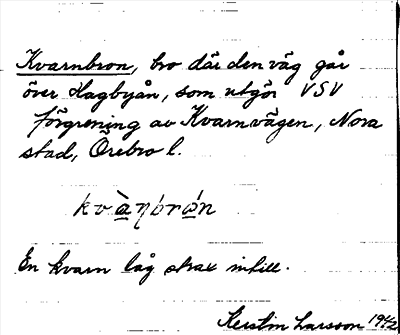 Kvarnbron, bro där den väg går
över Hagbyån, som utgör VSV
förgrening av Kvarnvägen, Nora
stad, Örebro l.
kvàɳbrón
En kvarn låg strax intill.
Kerstin Larsson 1942